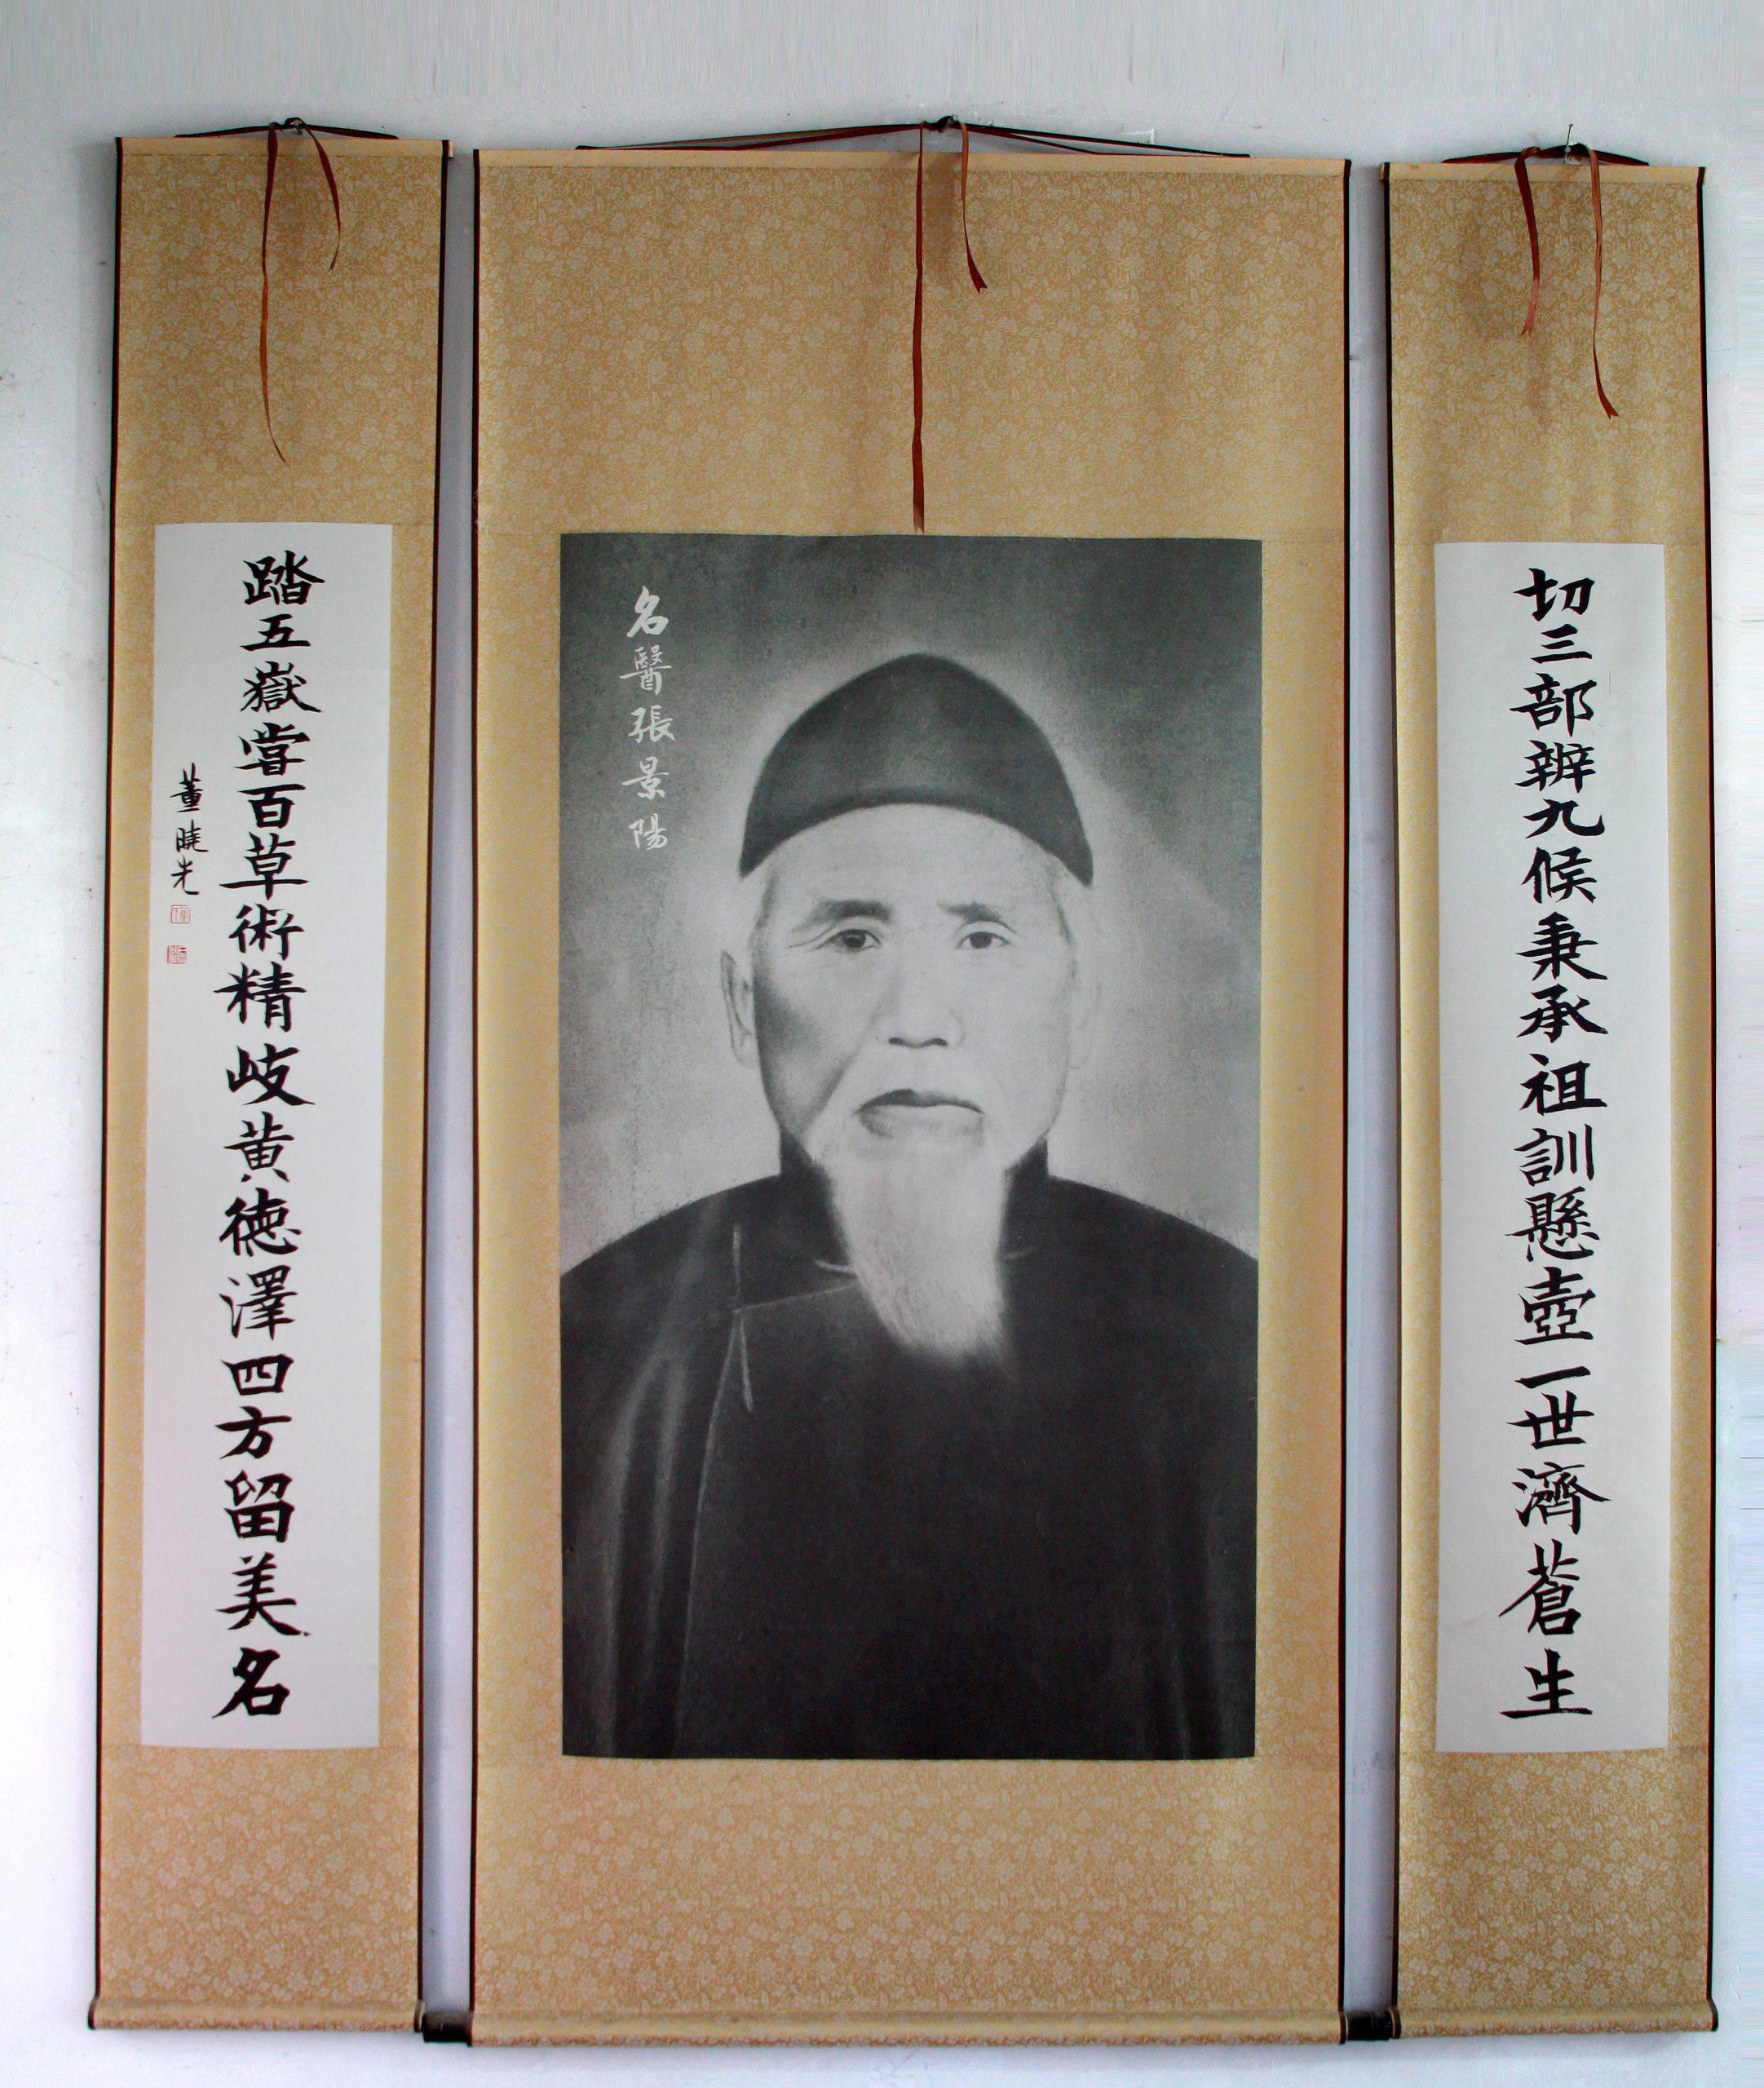 切三部辨九候秉承祖訓懸壺一世濟蒼生
名醫張景陽
踏五嶽嘗百草術精岐黃德澤四方留美名
董曉光